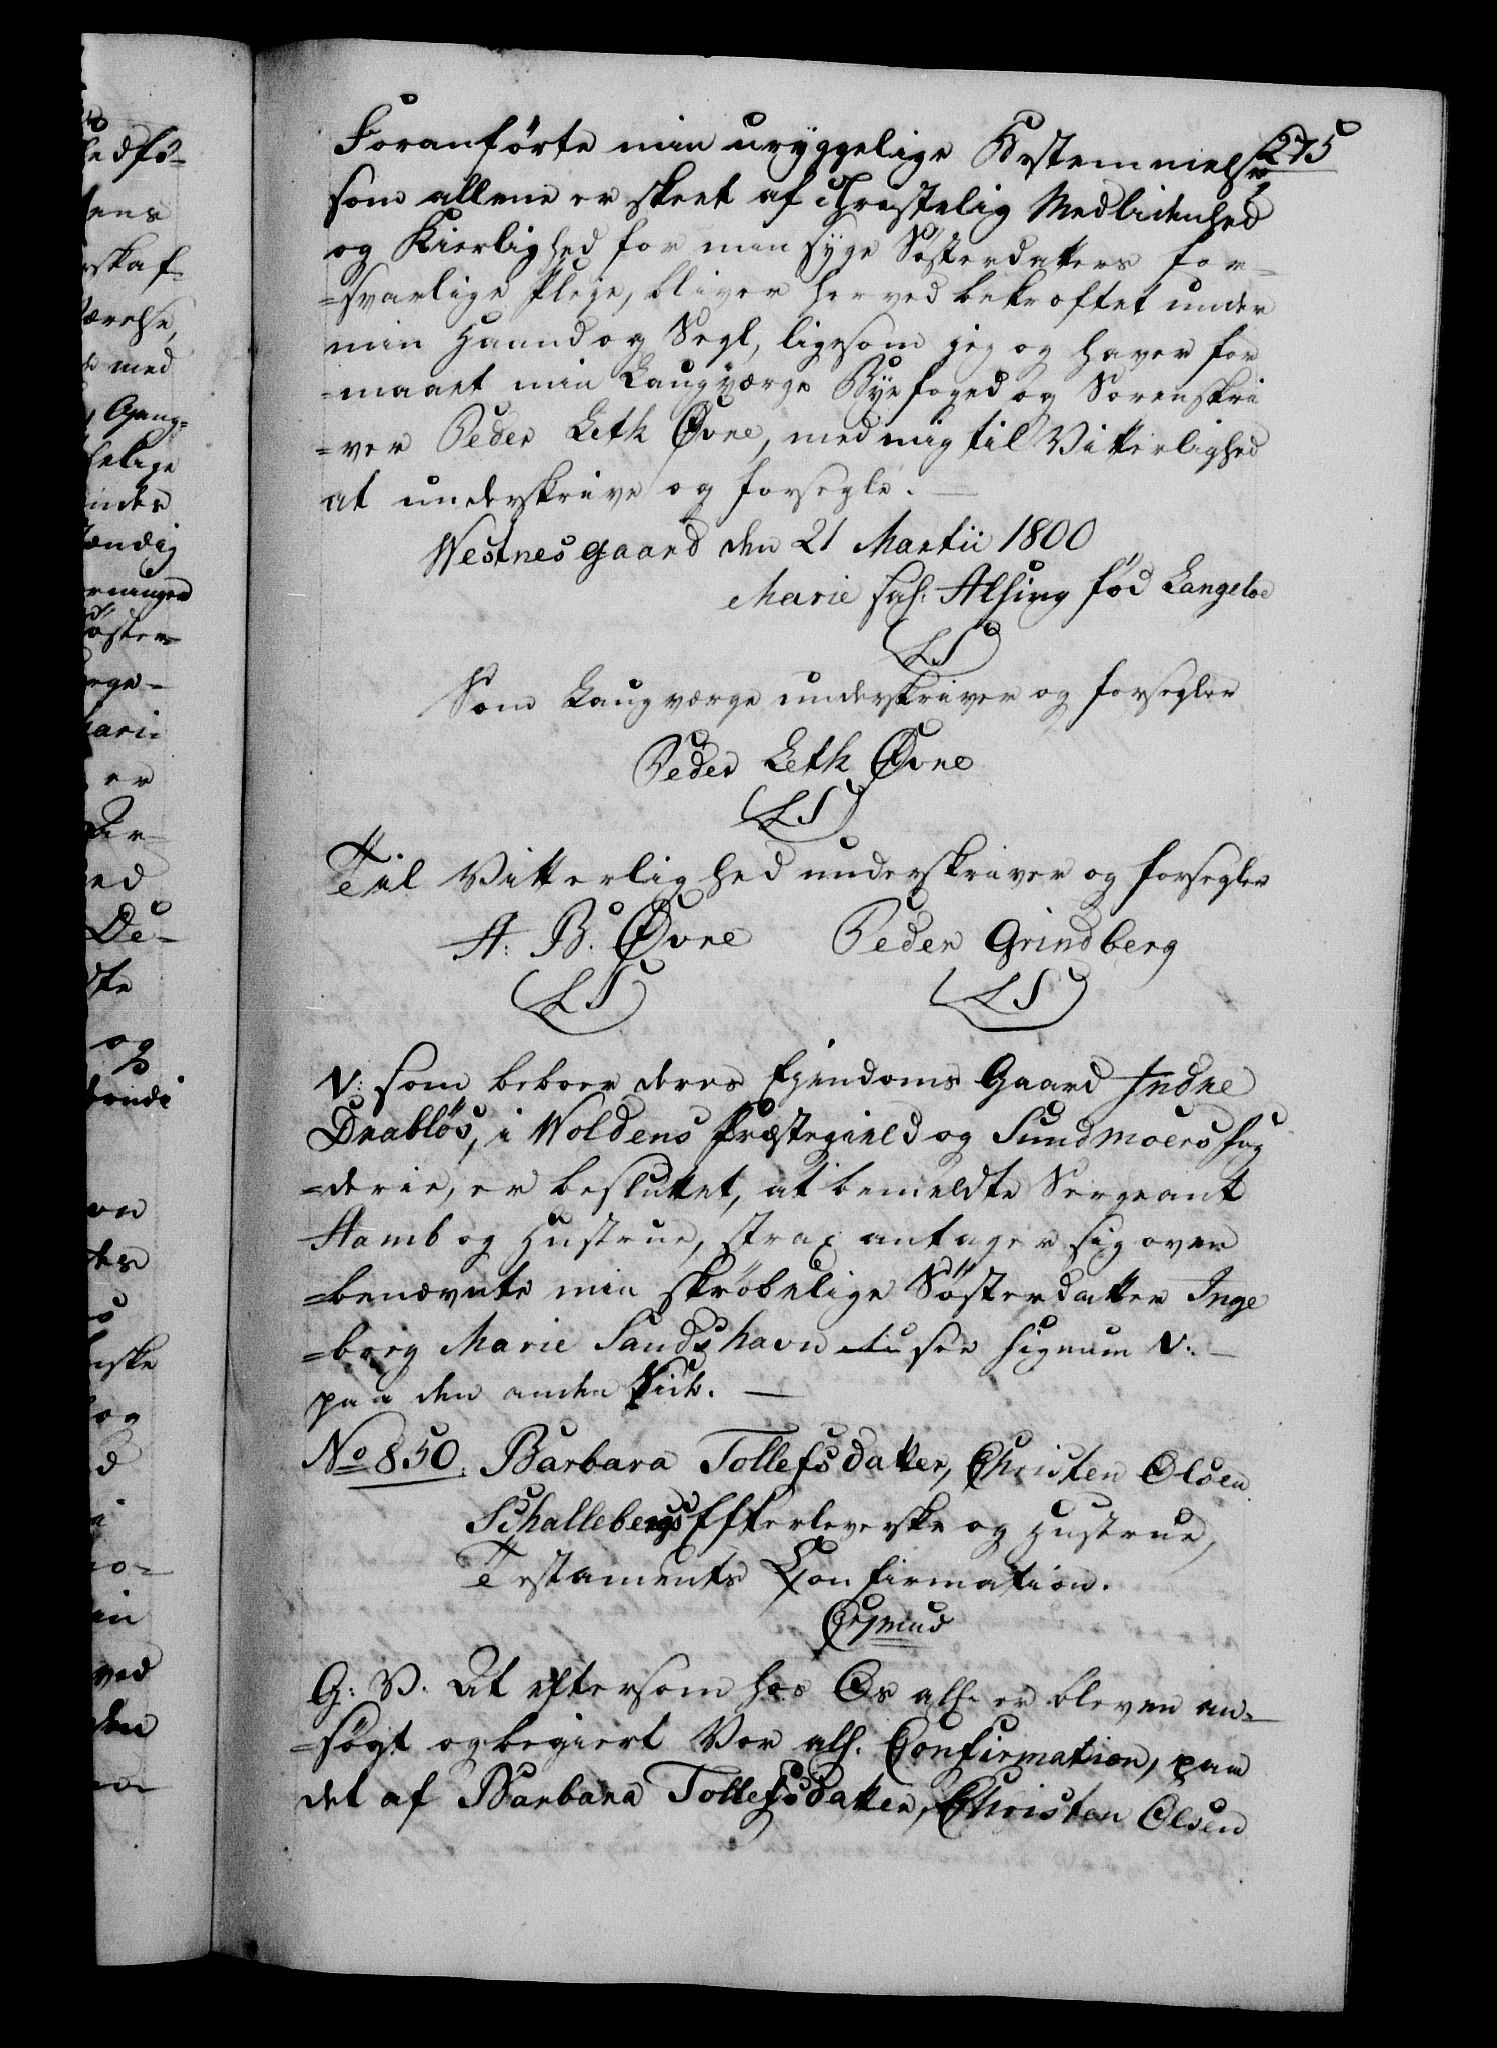 275
Foranførte min uryggelige Bestemmelse
som allene er skeet af Christelig Medlidenhed
og Kierlighed for min syge Søsterdatters for-
=svarlige Pleje, bliver herved bekræftet under
min Haand og Segl, ligesom jeg og haver for
=maaet min Laugværge Byefoged og Sorenskri
=ver Peder Leth Øvne, med mig til Vitterlighed
at underskrive og forsegle.
Westnesgaard den 21 Martii 1800
Marie sal: Alsing fød Langeloe
(LS)
Som Laugværge underskriver og forsegler
Peder Leth Øvne
(LS)
Til Vitterlighed underskriver og forsegler
A: B. Øvne Peder Grindberg
(LS) (LS)
V: som beboer deres Ejendoms Gaard Indre
Drabløs, i Woldens Præstegield og Sundmoers Fog
=derie, er besluttet, at bemeldte Sergeant
Hamb og Hustrue, strax antager sig oven
=benævnte min skrøbelige Søsterdatter Inge
=borg Marie Sandshavn see Signum V:
paa den anden Side.
No 850. Barbara Tollefsdatter, Christen Olsen
Schallebergs Efterleverske og Hustrue,
Testaments Confirmation.
G: V. At eftersom hos Os all: er bleven an-
=søgt og begiert Vor all: Confirmation, paa
det af Barbara Tollefsdatter, Christen Olsen